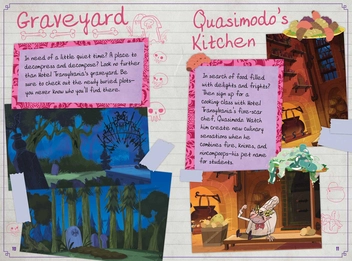 Graveyard
In need of a little quiet time? A place to
decompress and decompose? Look no further
than Hotel Transylvania's graveyard. Be
sure to check out the newly buried plots—
you never know who you'll find there.
Quasimodo's
Kitchen
In search of food filled
with delights and frights?
Then sign up for a
cooking class with Hotel
Transylvania's five-roar
chef, Quasimodo. Watch
him create new culinary
sensations when he
combines fire, knives, and
nincompoops—his pet name
for students.